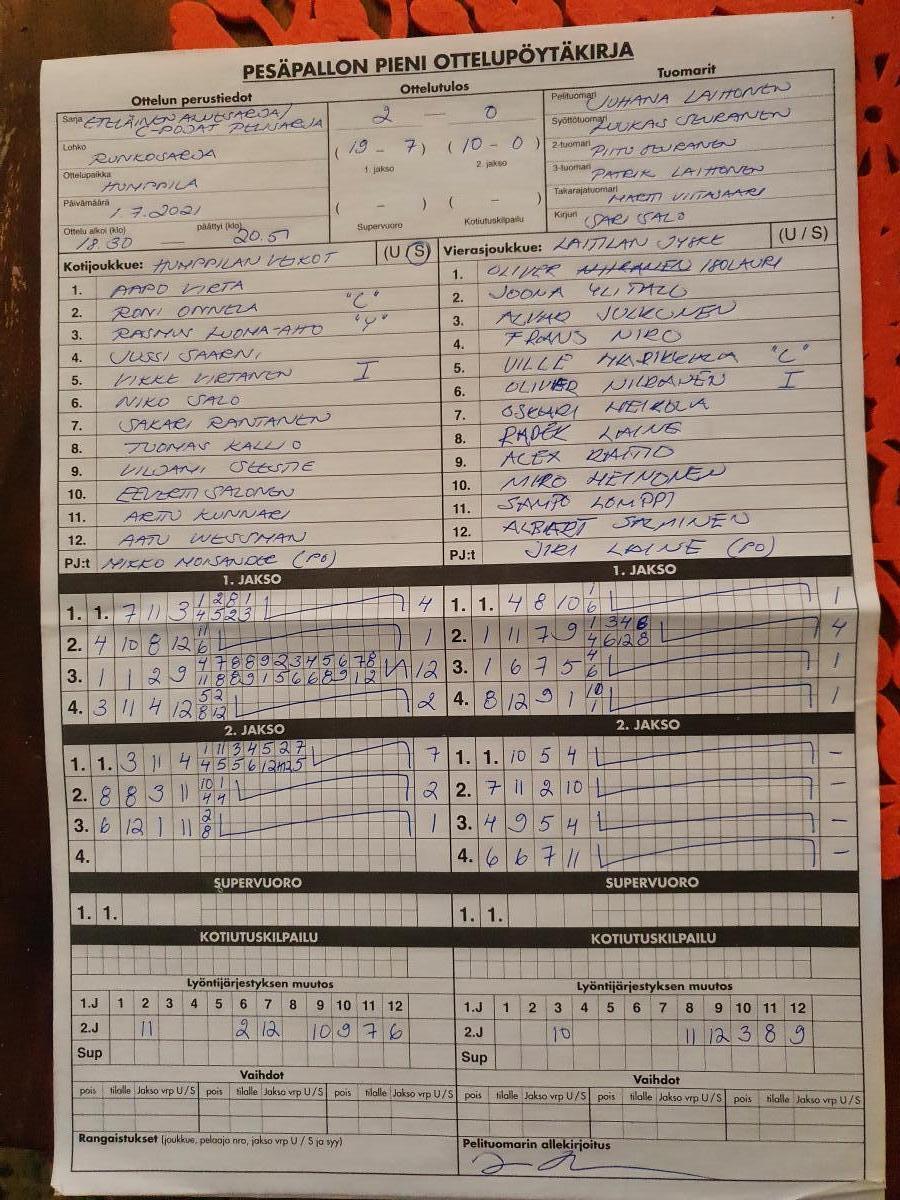 PESÄPALLON PIENI OTTELUPÖYTÄKIRJA
Ottelun perustiedot
Ottelutulos
Tuomarit
Sarja ETELÄINEN ALUESARJA/
C-POJAT PELISARJA
Lohko RUNKOSARJA
Ottelupaikka HUMPPILA
Päivämäärä 1.7.2021
Ottelu alkoi (klo) päättyi (klo)
18.30 — 20.51
2 — 0
(19 - 7) (10 - 0)
1. jakso 2. jakso
( - ) ( - )
Supervuoro Kotiutuskilpailu
Pelituomari JUHANA LAIHONEN
Syöttötuomari LUUKAS SEURANEN
2-tuomari PIITU SEURANEN
3-tuomari PATRIK LAIHONEN
Takarajatuomari MARTI VIITAJAARI
Kirjuri SARI SALO
Kotijoukkue: HUMPPILAN VEIKOT (U / S)
1. AAPO VIRTA
2. RONI ONNELA "C"
3. RASMUS LUOMA-AHO "V"
4. JUSSI SAARNI
5. VIKKE VIRTANEN I
6. NIKO SALO
7. SAKARI RANTANEN
8. TUOMAS KALLIO
9. VILJAMI SEESTIE
10. EEVERTI SALONEN
11. ARTTU KUNNARI
12. AATU WESSMAN
PJ:t MIKKO MOISANDER (PO)
Vierasjoukkue: LAITILAN JYSKE (U / S)
1. OLIVER ISOLAURI
2. JOONA YLITALO
3. JULKUNEN
4. FRANS NIRO
5. VILLE "C"
6. OLIVER NIIRANEN I
7. OSKARI HEIKOLA
8. PADEK LAINE
9. ALEX RAITIO
10. MIRO HEINONEN
11. SAMPO LOMPPI
12. ALBERT SALMINEN
PJ:t JIRI LAINE (PO)
1. JAKSO
1. 1. 7 11 3 1 2 8 1 4
4 5 2 3
2. 4 10 8 12 11 1
6
3. 1 1 2 9 4 7 8 8 9 2 3 4 5 6 7 8 12
11 8 8 9 1 5 6 6 8 9 1 2
4. 3 11 4 12 5 2 2
8 12
1. JAKSO
1. 1. 4 8 10 1 1
6
2. 1 11 7 9 1 3 4 6 4
4 6 12 8
3. 1 6 7 5 4 1
6
4. 8 12 9 1 10 1
1
2. JAKSO
1. 1. 3 11 4 1 11 3 4 5 2 7 7
4 5 5 6 12 5
2. 8 8 3 11 10 1 2
4 4
3. 6 12 1 11 2 1
8
4.
2. JAKSO
1. 1. 10 5 4 –
2. 7 11 2 10 –
3. 4 9 5 4 –
4. 6 6 7 11 –
SUPERVUORO
1. 1.
SUPERVUORO
1. 1.
KOTIUTUSKILPAILU
KOTIUTUSKILPAILU
Lyöntijärjestyksen muutos
1.J 1 2 3 4 5 6 7 8 9 10 11 12
2.J 11 2 12 10 9 7 6
Sup
Lyöntijärjestyksen muutos
1.J 1 2 3 4 5 6 7 8 9 10 11 12
2.J 10 11 12 3 8 9
Sup
Vaihdot
pois tilalle Jakso vrp U / S pois tilalle Jakso vrp U / S pois tilalle Jakso vrp U / S
Vaihdot
pois tilalle Jakso vrp U / S pois tilalle Jakso vrp U / S pois tilalle Jakso vrp U / S
Rangaistukset (joukkue, pelaaja nro, jakso vrp U / S ja syy)
Pelituomarin allekirjoitus